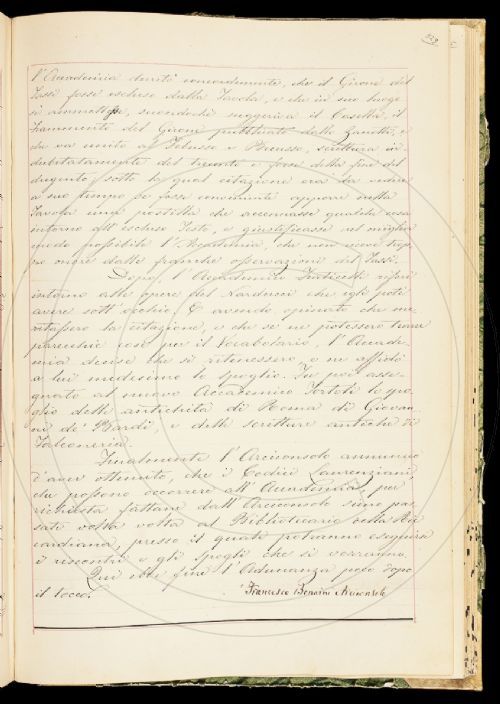 529
l'Accademia sentì concordemente, che il Girone del
Tassi fosse escluso dalla Tavola, e che in suo luogo
si ammettesse, secondochè suggeriva il Casella, il
frammento del Girone pubblicato dallo Zanotti, e
che va unito a Febusso e Breusso, scrittura in-
dubitatamente del trecento e forse della fine del
dugento: sotto la qual citazione era da vedere
a suo tempo se fosse conveniente apporre nella
Tavola una postilla che accennasse qualche cosa
intorno all'escluso Testo, e giustificasse nel miglior
modo possibile l'Accademia, che non riceve trop-
po onore dalle franche osservazioni del Tassi.
Dopo, l'Accademico Turticelli riferì
intorno alle opere del Narducci che egli potè
avere sott'occhio. E avendo opinato che me-
ritassero la citazione, e che se ne potessero trarre
parecchie cose per il Vocabolario, l'Accade-
mia decise che si ritenessero, e ne affidò
a lui medesimo lo spoglio. Fu poi asse-
gnato al nuovo Accademico Tortoli lo spo-
glio delle antichità di Roma di Giovan-
ni de' Bardi, e delle scritture antiche di
Falconeria.
Finalmente l'Arciconsolo annunziò
d'aver ottenuto, che i Codici Laurenziani,
che possono occorrere all'Accademia, per
richiesta fattane dall'Arciconsolo sieno pas-
sati volta volta al Bibliotecario della Ric-
cardiana, presso il quale potranno eseguirsi
i riscontri e gli spogli che si vorranno.
Qui ebbe fine l'Adunanza poco dopo
il tocco.
Francesco Bonaini Arciconsolo